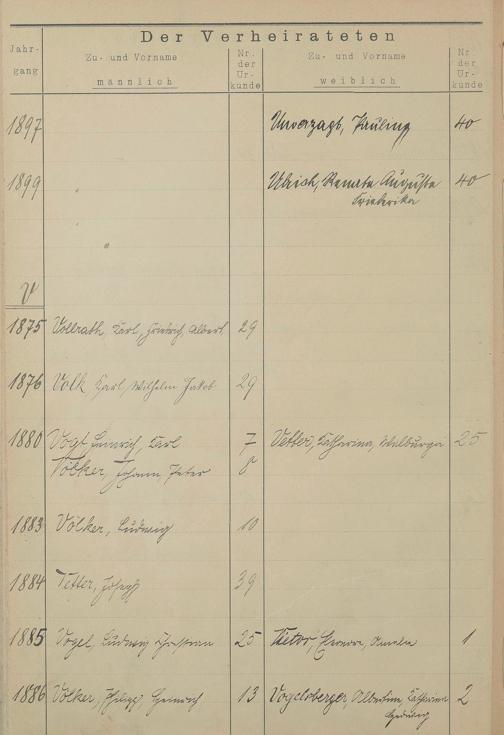 Der Verheirateten
Jahr-
gang
Zu- und Vorname
männlich
Nr.
der
Ur-
kunde
Zu- und Vorname
weiblich
Nr.
der
Ur-
kunde
1897 Unverzagt, Pauline 40
1899 Ulrich, Renata Auguste 40
Friederika
V
1875 Vollrath, Karl, Friedrich Albert 29
1876 Volk, Karl, Wilhelm Jakob 29
1880 Vogt, Heinrich, Karl 7 Vetter, Katharina, Walburga 25
Völker, Johann, Peter 8
1883 Völker, Ludwig 10
1884 Vetter, Joseph 39
1885 Vogel, Ludwig Christian 25 Vietor, Amalie 1
1886 Völker, Philipp, Heinrich 13 Vogelsberger, Albertine, Katharina 2
Hedwig